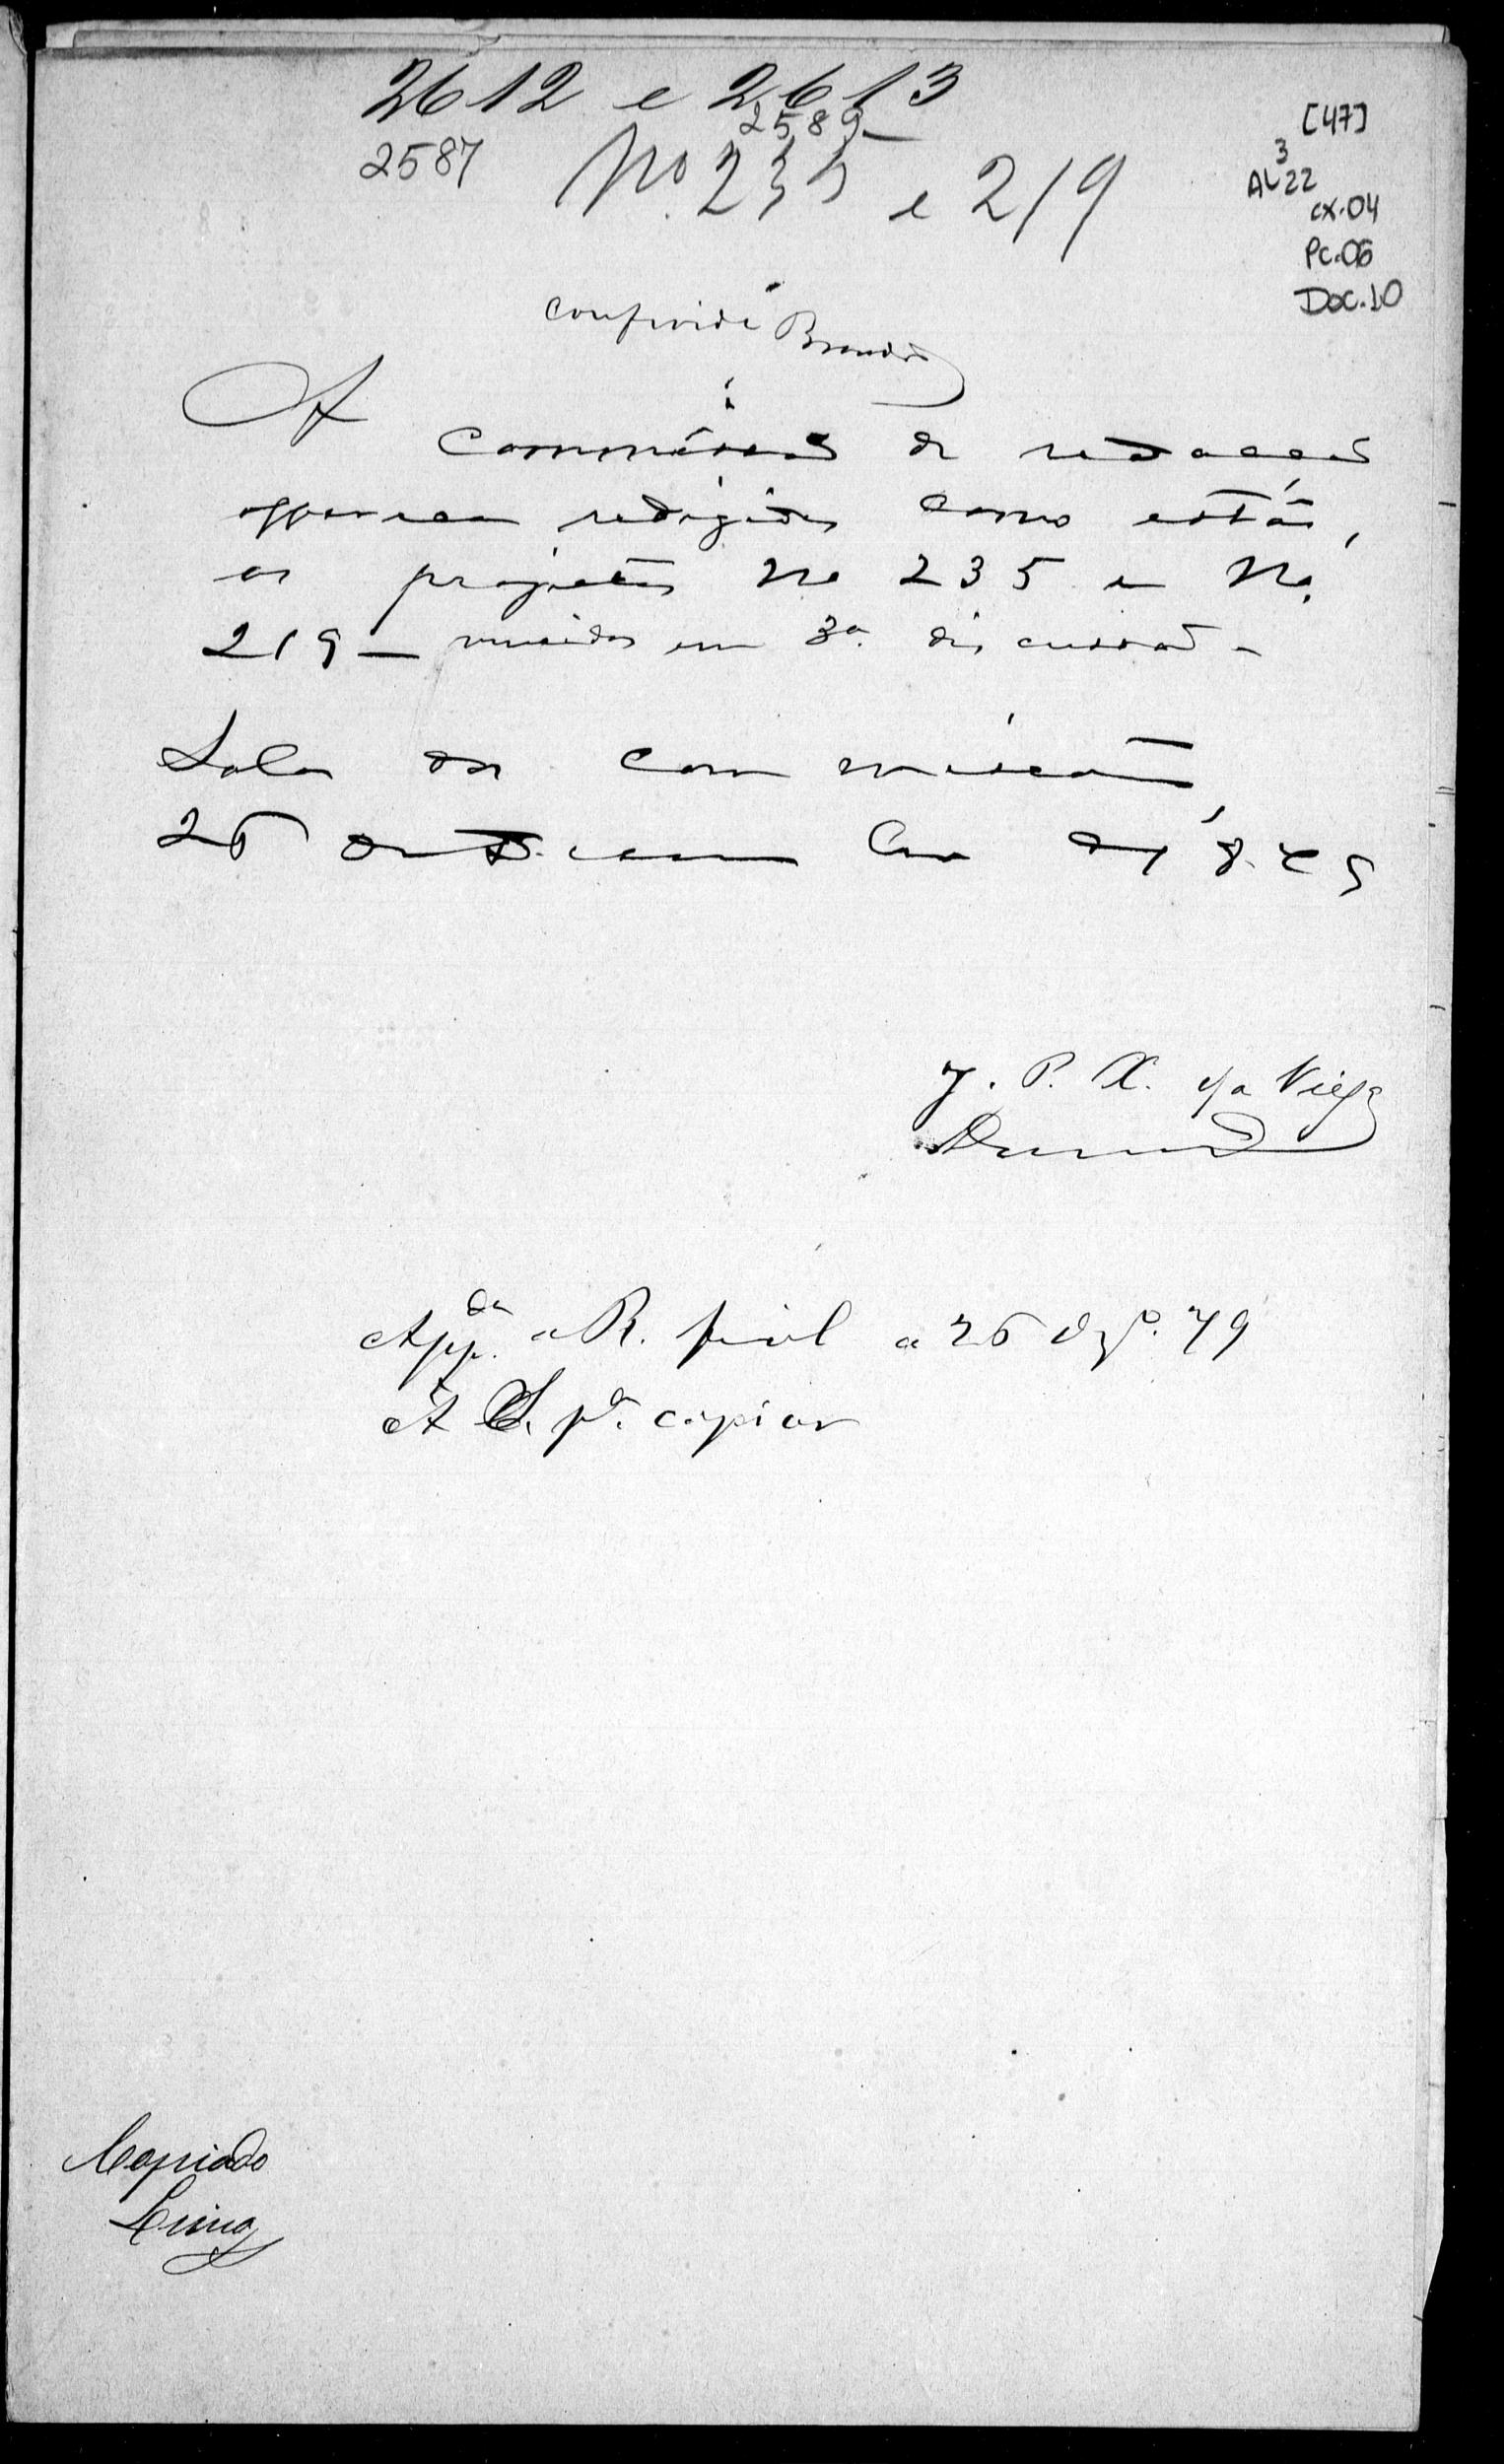 2612 e 2613
2589
2587 No. 235 e 219
[47]
3
AL 22
cx.04
Pc.06
Doc.10
Conferido Brandão
A Commissão de redacção
offerece redigidos como estão,
os projectos No 235 e No.
219 — em 3a. discussão -
Sala das commissões,
26 de Dezembro de 1879
J. P. X. da Veiga
Appda. a R. final a 26 Dzo. 79
A S. pa. copiar
Copiado
Lima